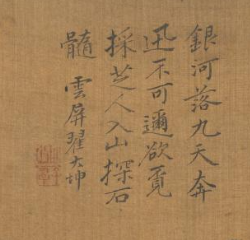 銀河落九天奔
迅不可邇欲覓
採芝人入山探石
髓 雲屏翟大坤